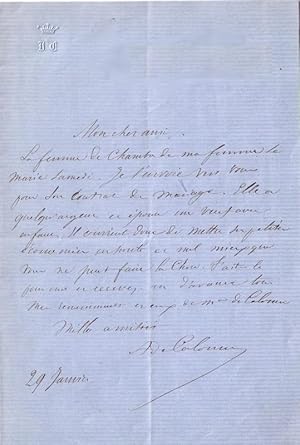 Mon cher ami,
La femme de Chambre de ma femme se
marie Samedi. Je l'envoie vers vous
pour son Contrat de mariage. Elle a
quelqu'argent et épouse un veuf avec
enfans. Il convient donc de mettre ses petites
économies en sureté et nul mieux que
vous ne peut faire la chose. Faites le
pour moi et recevez en d'avance tous
mes remerciemens et ceux de Mme de Calonne
Mille amitiés
A de Calonne
29 Janvier